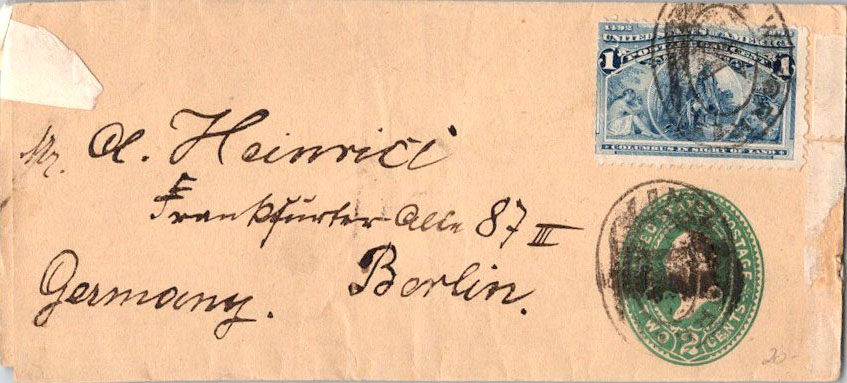 1492
UNITED STATES OF AMERICA
1 1
COLUMBUS IN SIGHT OF LAND
Mr. A. Heinrici
Frankfurter Alle 87 III
Germany. Berlin.
POSTAGE
TWO 2 CENTS
20-